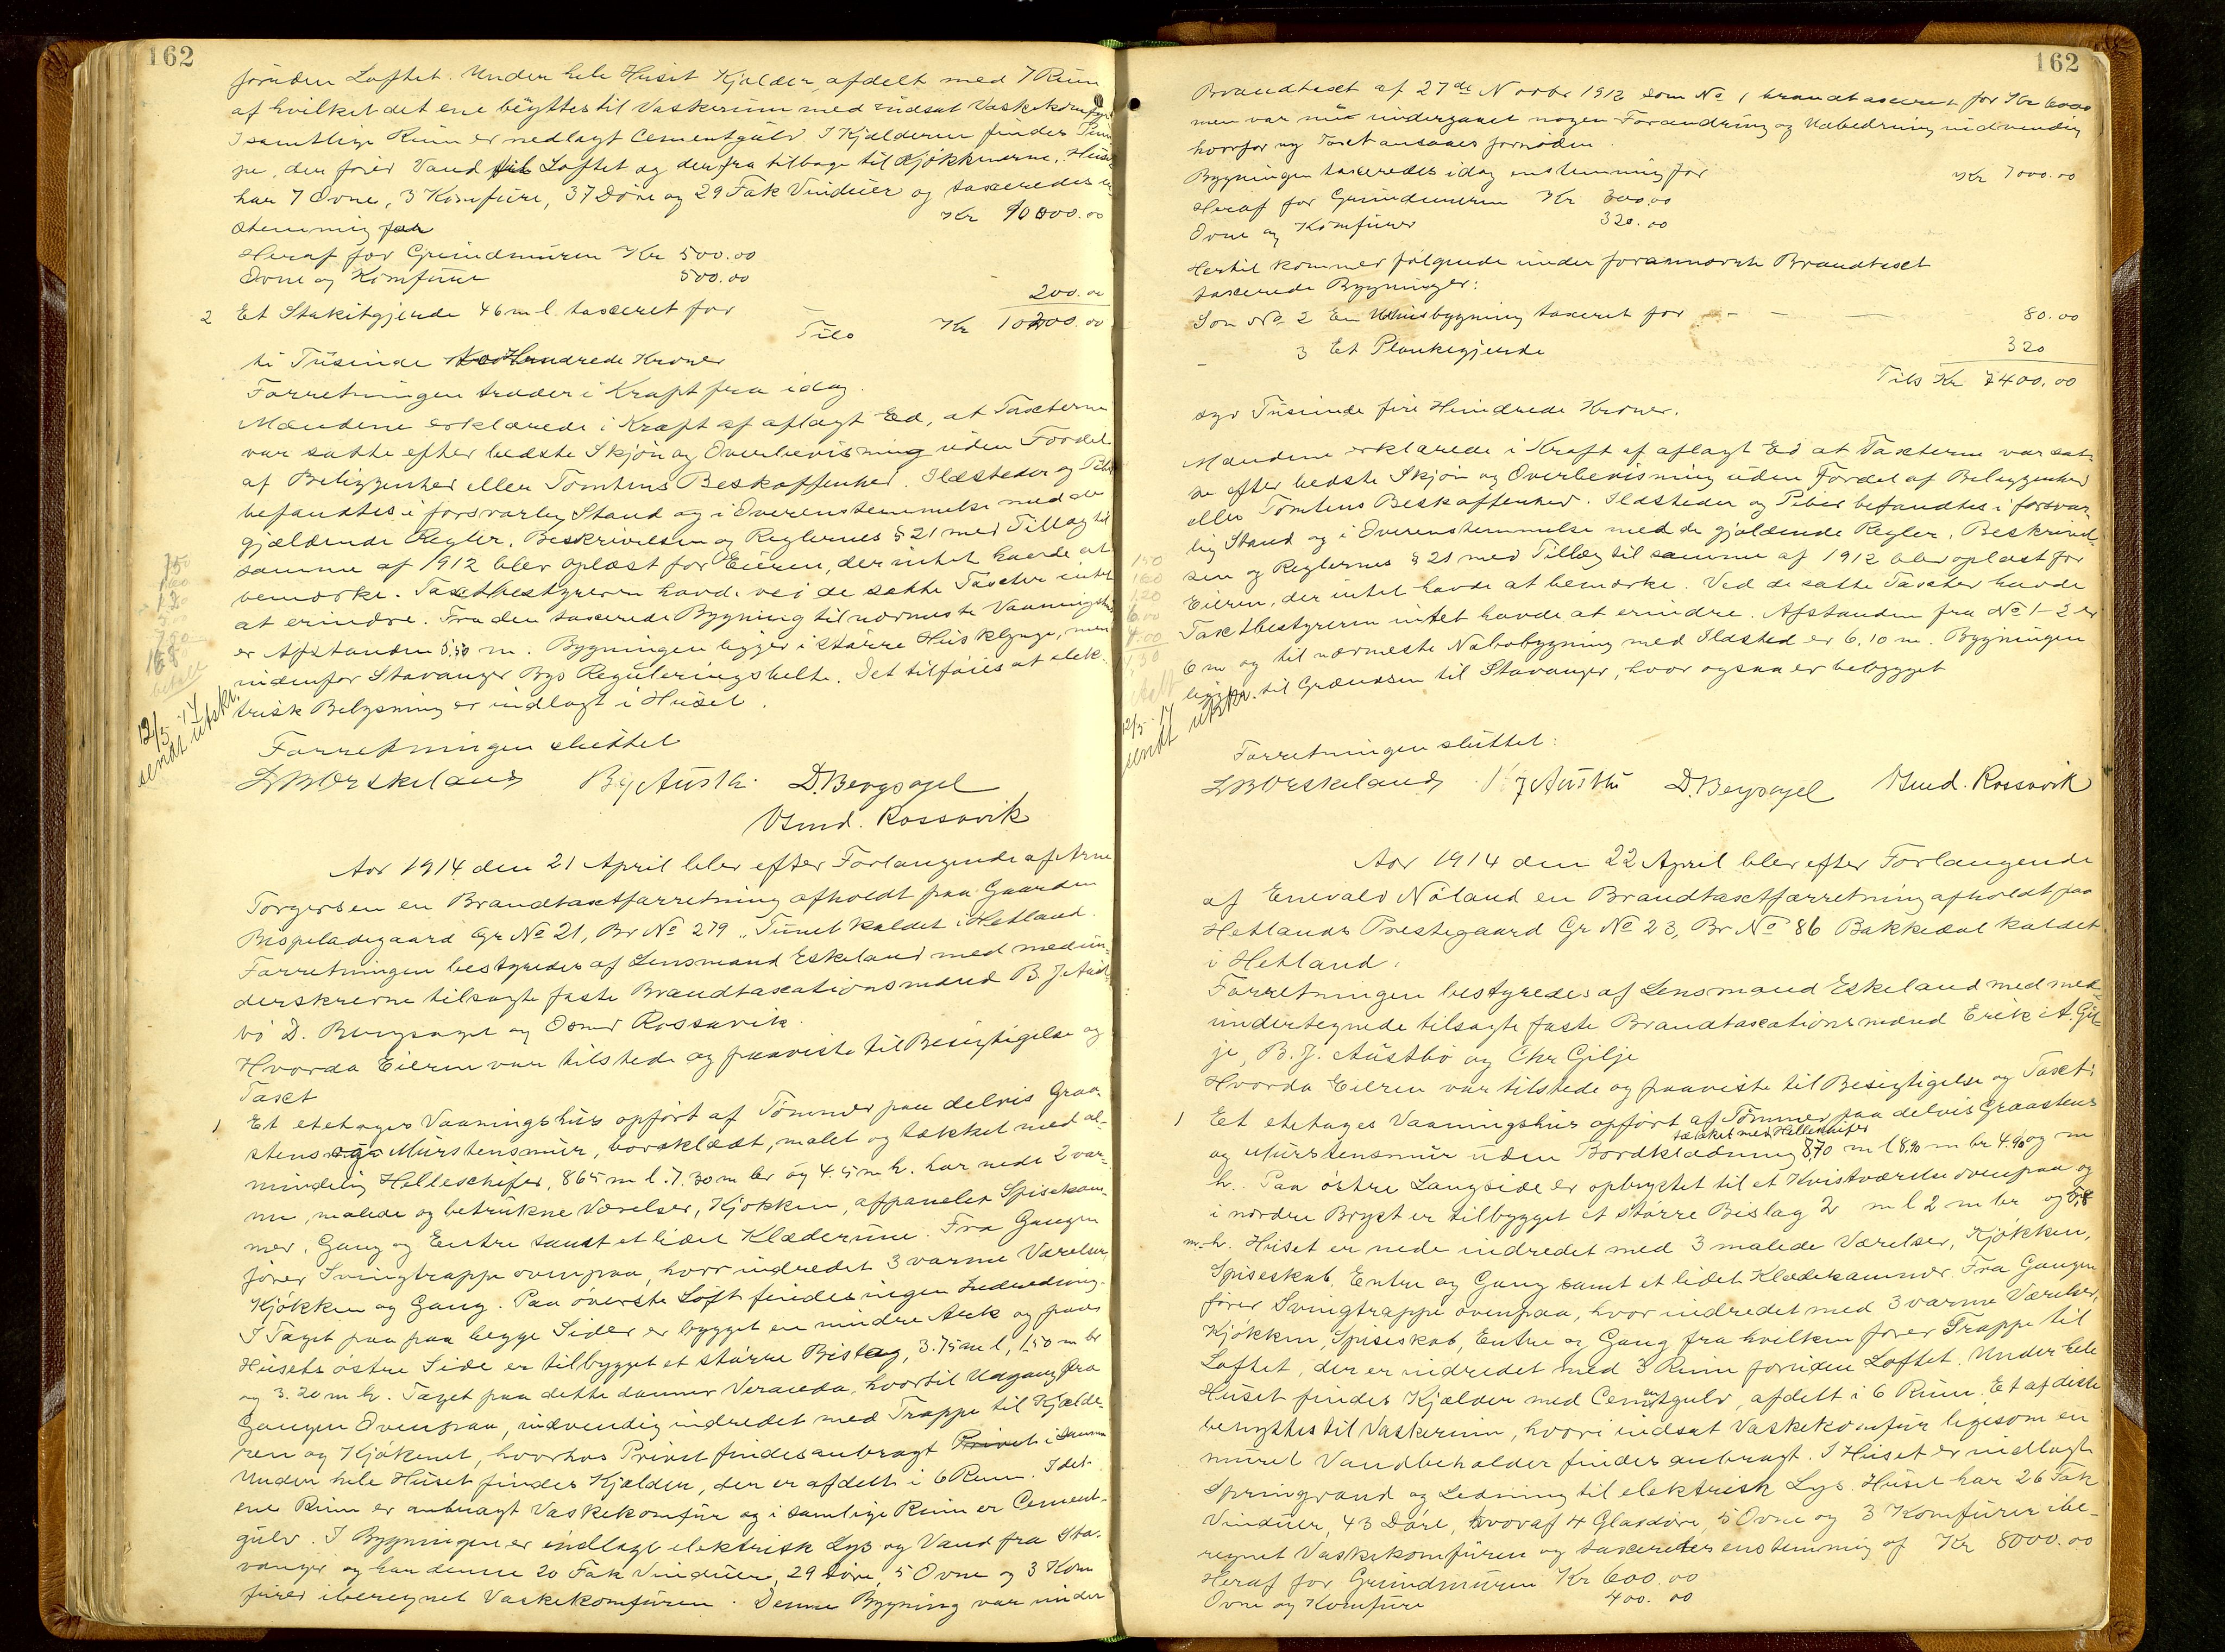 162
foruden Loftet. Under hele Huset Kjælder, afdelt med 7 Rum
af hvilket det ene benyttes til Vaskerum med indsat Vaskekomfyr
I samtlige Rum er nedlagt Cementgulv I Kjælderen findes Pum
pe, der fører Vand til Loftet og derfra tilbage til Kjøkkenerne. Huset
har 7 Ovne, 3 Komfure, 37 Døre og 29 Fak Vinduer og taxeredes en
stemmig for Kr 10000.00
Heraf for Grundmuren Kr 500.00
Ovne og Komfure 500.00
2 Et Stakitgjerde 46 m l taxeret for 200.00
Tils Kr 10200.00
ti Tusinde to Hundrede Kroner
Forretningen træder i Kraft fra idag.
Mændene erklærede i Kraft af aflagt Ed, at Taxterne
var satte efter bedste Skjøn og Overbevisning uden Fordel
af Beliggenhed eller Tomtens Beskaffenhed. Ildsteder og Piber
befandtes i forsvarlig Stand og i Overenstemmelse med de
gjældende Regler. Beskrivelsen og Reglernes § 21 med Tillæg til
samme af 1912 blev oplæst for Eieren, der intet havde at
bemærke. Taxtbestyreren havde ved de satte Taxter intet
at erindre. Fra den taxerede Bygning til nærmeste Vaaningshus
er Afstanden 5.50 m. Bygningen ligger i større Husklynge, men
udenfor Stavanger Bys Reguleringsbelte. Det tilføies at elek-
trisk Belysning er indlagt i Huset.
12/5 - 14
sendt utskr.
Forretningen sluttet
Bj Austbø D. Bergsagel
Osmd. Rossavik
Aar 1914 den 21 April blev efter Forlangende af Arne
Torgersen en Brandtaxtforretning afholdt paa Gaarden
Bispeladegaard Gr No 21, Br No 279 „Tunet kaldet i Hetland.
Forretningen bestyredes af Lensmand Eskeland med medun-
derskrevne tilsagte faste Brandtaxationsmænd B. J. Aust-
bø D. Bergsagel og Osmd Rossavik.
Hvorda Eieren var tilstede og paaviste til Besigtigelse og
Taxt
1 Et etetages Vaaningshus opført af Tømmer paa delvis Graa-
stens og Murstensmur, bordklædt, malet og tækket med al-
mindelig Helleschifer, 865 m l. 7.30 m br og 4.5 m h. har nede 2 var-
me, malede og betrukne Værelser, Kjøkken, afpanelet Spisekam-
mer, Gang og Entre samt et lidet Klæderum. Fra Gangen
fører Svingtrappe ovenpaa, hvor indredet 3 varme Værelser,
Kjøkken og Gang. Paa øverste Loft findes ingen Indredning.
I Taget paa paa begge Sider er bygget en mindre Ark og paa
Husets østre Side er tilbygget et større Bislag, 3.75 m l, 1.50 m br
og 3.20 m h. Taget paa dette danner Veranda, hvortil Udgang fra
Gangen Ovenpaa, indvendig indredet med Trappe til Kjælde-
ren og Kjøkenet, hvorhos Privet findes anbragt Privet i samme
Under hele Huset findes Kjælder, der er afdelt i 6 Rum. I det
ene Rum er anbragt Vaskekomfur og i samlige Rum er Cement-
gulv. I Bygningen er indlagt elektrisk Lys og Vand fra Sta-
vanger og har denne 20 Fak Vinduer, 29 Døre, 5 Ovne og 3 Kom
furer iberegnet Vaskekomfuren. Denne Bygning var under
162
Brandtaxt af 27de Novbr 1912 som No 1 brandtaxeret for Kr 6000
men var nu undergaaet nogen Forandring og Udbedring indvendig
hvorfor ny Taxt ansaaes fornøden.
Bygningen taxeredes idag enstemmig for Kr 7000.00
Heraf for Grundmuren Kr 300.00
Ovne og Komfurer 320.00
Hertil kommer følgende under forannævnte Brandtaxt
taxerede Bygninger:
Som No 2 En Udhusbygning taxeret for - - - 80.00
3 Et Plankegjerde 320
Tils Kr 7400.00
syv Tusinde fire Hundrede Kroner.
Mændene erklærede i Kraft af aflagt Ed at Taxterne var sat-
te efter bedste Skjøn og Overbevisning uden Fordel af Beliggenhed
eller Tomtens Beskaffenhed. Ildsteder og Piber befandtes i forsvar
lig Stand og i Overenstemmelse med de gjældende Regler. Beskrivel-
sen og Reglernes § 21 med Tillæg til samme af 1912 blev oplæst for
Eieren, der intet havde at bemærke. Ved de satte Taxter havde
Taxtbestyreren intet havde at erindre. Afstanden fra No 1-2 er
6 m og til nærmeste Nabobygning med Ildsted er 6.10 m. Bygningen
ligger til Grændsen til Stavanger, hvor ogsaa er bebygget
12/5 - 14
sendt utskr.
Forretningen sluttet:
Bj Austbø D. Bergsagel Osmd. Rossavik
Aar 1914 den 22 April blev efter Forlangende
af Enevald Nøland en Brandtaxtforretning afholdt paa
Hetlands Prestegaard Gr No 23, Br No 86 Bakkedal kaldet
i Hetland.
Forretningen bestyredes af Lensmand Eskeland med med-
undertegnede tilsagte faste Brandtaxationsmænd Erik A. Gil-
je, B. J. Austbø og Chr Gilje
Hvorda Eieren var tilstede og paaviste til Besigtigelse og Taxt:
1 Et etetages Vaaningshus opført af Tømmer paa delvis Graastens
tækket med Helleskifer
og Murstensmur uden Bordklædning 8.70 m l 8.90 m br 4.90 og m
h. Paa østre Langside er opbygtet til et Kvistværelse ovenpaa og
i nordre Bryst er tilbygget et større Bislag 2 m l 2 m br og
m h. Huset er nede indredet med 3 malede Værelser, Kjøkken,
Spiseskab, Entre og Gang samt et lidet Klædekammer. Fra Gangen
fører Svingtrappe ovenpaa, hvor indredet med 3 varme Værelser,
Kjøkken, Spiseskab, Entre og Gang fra hvilken fører Trappe til
Loftet, der er indredet med 3 Rum foruden Loftet. Under hele
Huset findes Kjælder med Cementgulv, afdelt i 6 Rum. Et af disse
benyttes til Vaskerum, hvori indsat Vaskekomfur ligesom en
muret Vandbeholder findes anbragt. I Huset er indlagt
Springvand og Ledning til elektrisk Lys. Huset har 26 Fak
Vinduer, 43 Døre, hvoraf 4 Glasdøre, 5 Ovne og 3 Komfurer ibe-
regnet Vaskekomfuren og taxeredes enstemmig af Kr 8000.00
Heraf for Grundmuren Kr 600.00
Ovne og Komfure 400.00